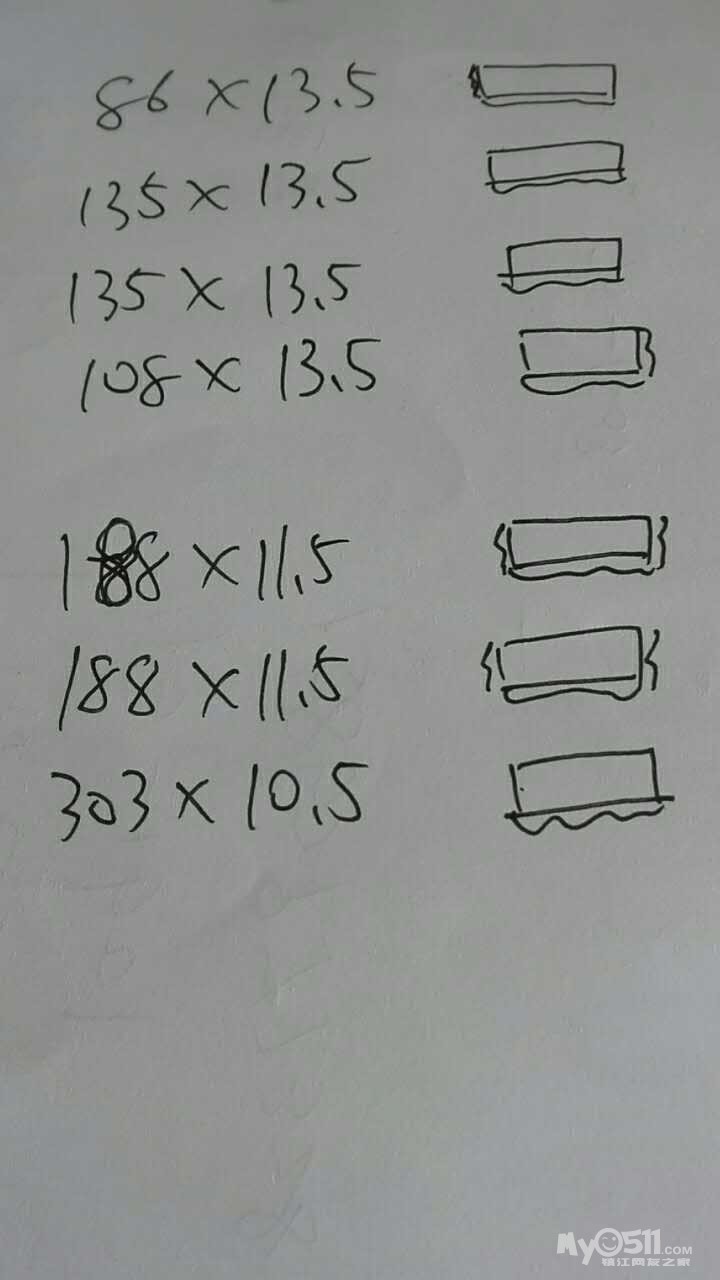 86 × 13.5
135 × 13.5
135 × 13.5
108 × 13.5
188 × 11.5
188 × 11.5
303 × 10.5
My0511.COM
镇江网友之家